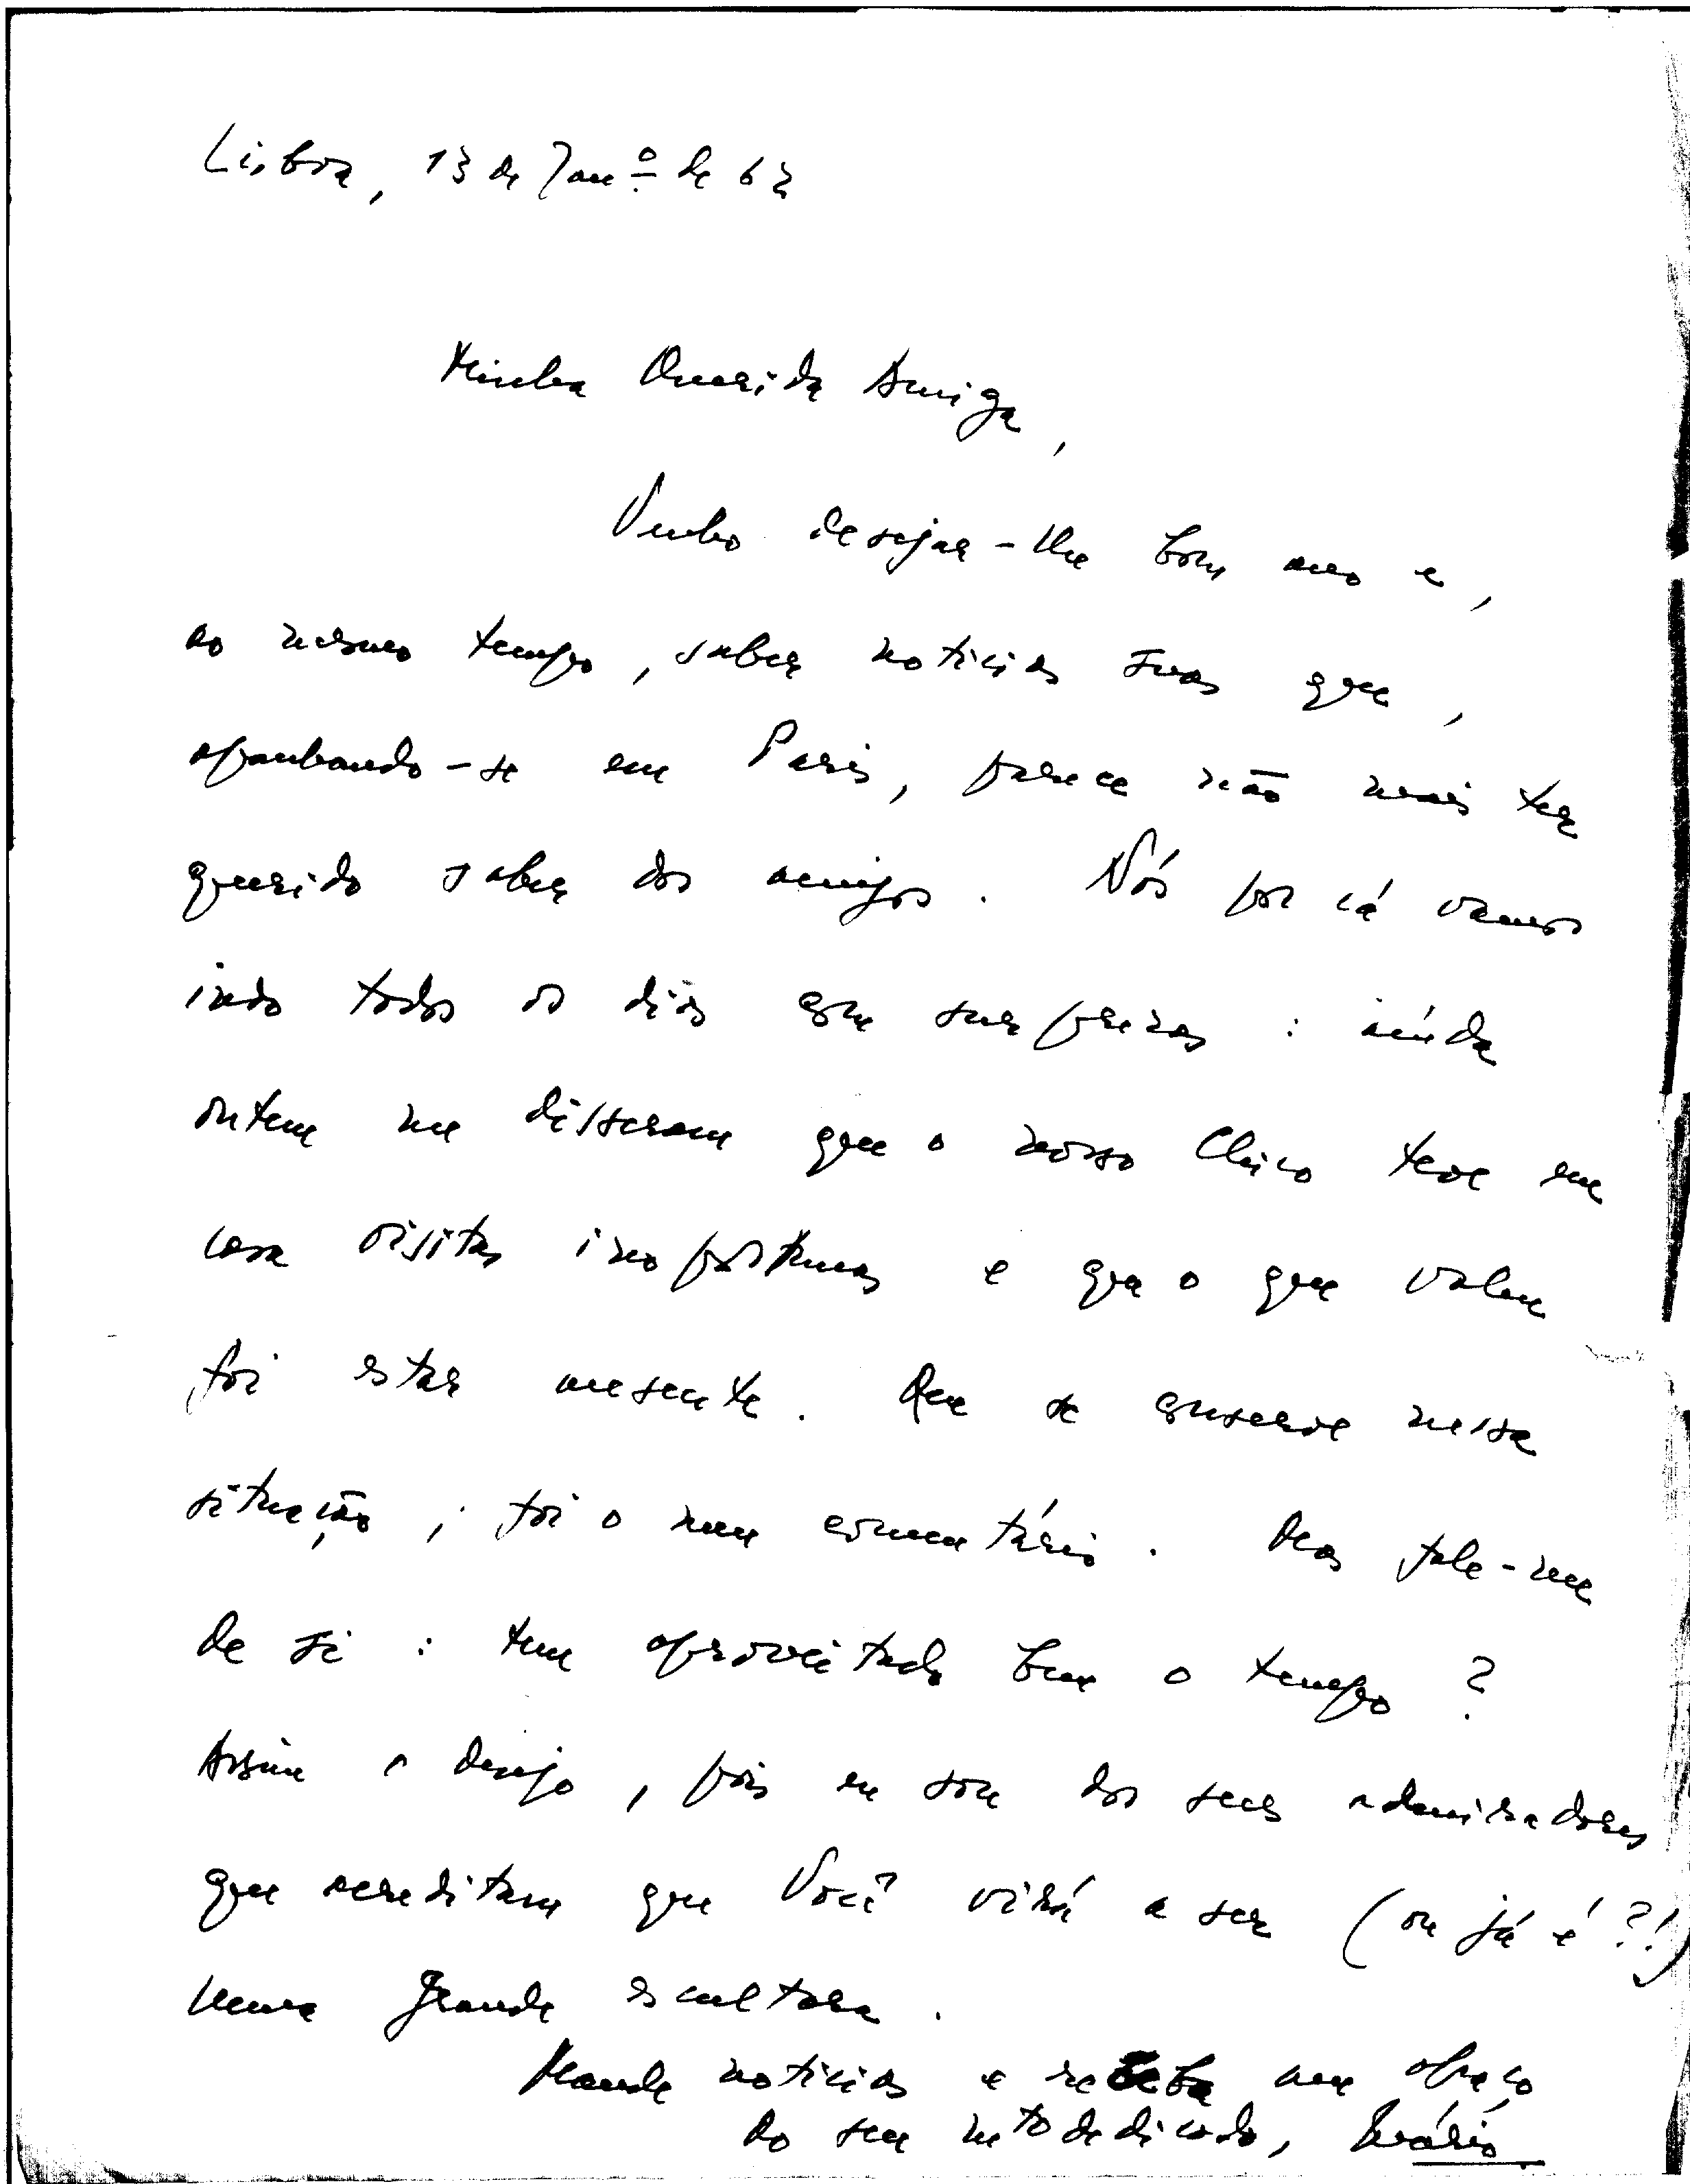 Lisboa, 13 de Jan.º de 62
Minha Querida Amiga,
Venho desejar-lhe bom ano e,
ao mesmo tempo, saber noticias suas que,
apanhando-se em Paris, parece não mais ter
querido saber dos amigos. Nós por cá vamos
indo todos os dias com surprezas: ainda
ontem me disseram que o nosso Chico teve em
casa visitas inoportunas e que o que valeu
foi estar ausente. Que se conserve nessa
situação, foi o meu comentário. Mas fale-me
de si: tem aproveitado bem o tempo?
Assim o desejo, pois eu sou dos seus admiradores
que acreditam que Você virá a ser (ou já é?!)
uma grande escultora.
Mande noticias e receba um abraço
do seu mto dedicado, Mário